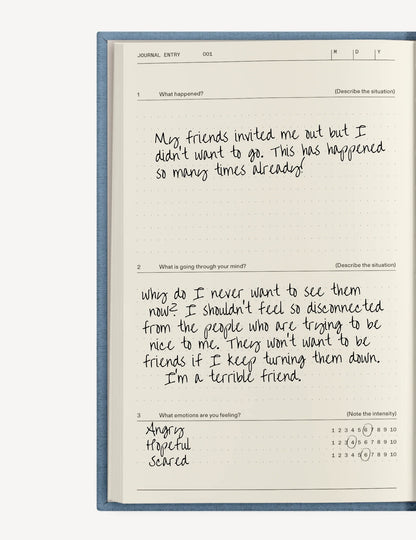 JOURNAL ENTRY 001 M D Y
1 What happened? (Describe the situation)
My friends invited me out but I
didn't want to go. This has happened
so many times already!
2 What is going through your mind? (Describe the situation)
Why do I never want to see them
now? I shouldn't feel so disconnected
from the people who are trying to be
nice to me. They won't want to be
friends if I keep turning them down.
I'm a terrible friend.
3 What emotions are you feeling? (Note the intensity)
Angry 1 2 3 4 5 6 7 8 9 10
Hopeful 1 2 3 4 5 6 7 8 9 10
Scared 1 2 3 4 5 6 7 8 9 10